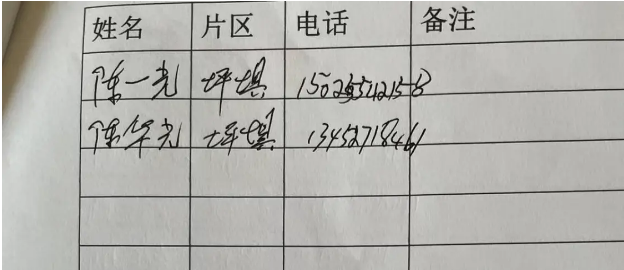 姓名 片区 电话 备注
陈一光 坪填
陈华光 坪填 13452718461